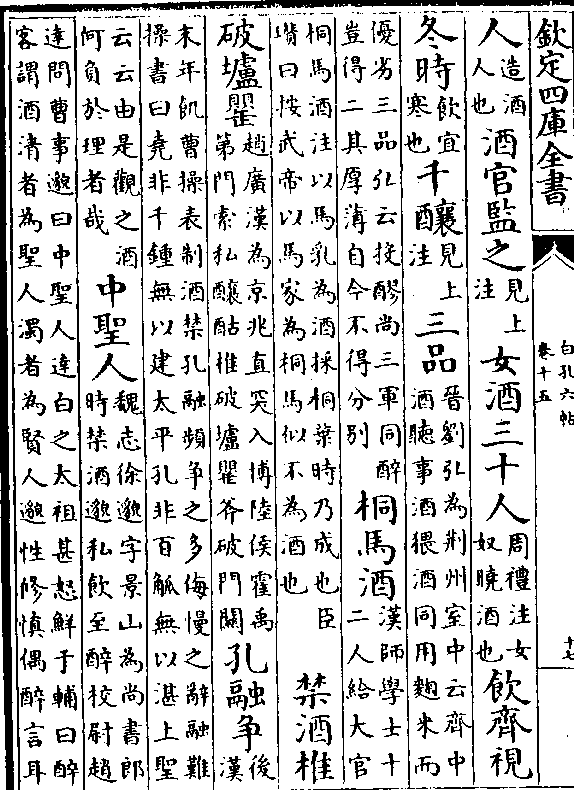 欽定四庫全書
白孔六帖
卷十五
十七
人造酒人也酒官監之見上注女酒三十人周禮注女奴曉酒也飲齊視
冬時飲宜寒也千釀見上注三品晉劉弘為荆州室中云齊中酒聽事酒猥酒同用麴米而
優劣三品弘云投醪尚三軍同醉豈得二其厚薄自今不得分別桐馬酒漢師學士十二人給大官
桐馬酒注以馬乳為酒採桐葉時乃成也臣瓉曰按武帝以馬家為桐馬似不為酒也禁酒椎
破壚罌趙廣漢為京兆直突入博陸侯霍禹第門索私釀酤椎破壚罌斧破門關孔融争後漢
末年飢曹操表制酒禁孔融頻争之多侮慢之辭融難操書曰堯非千鍾無以建太平孔非百觚無以湛上聖
云云由是觀之酒何負於理者哉中聖人魏志徐邈字景山為尚書郎時禁酒邈私飲至醉校尉趙
達問曹事邈曰中聖人達白之太祖甚怒鮮于輔曰醉客謂酒清者為聖人濁者為賢人邈性修慎偶醉言耳